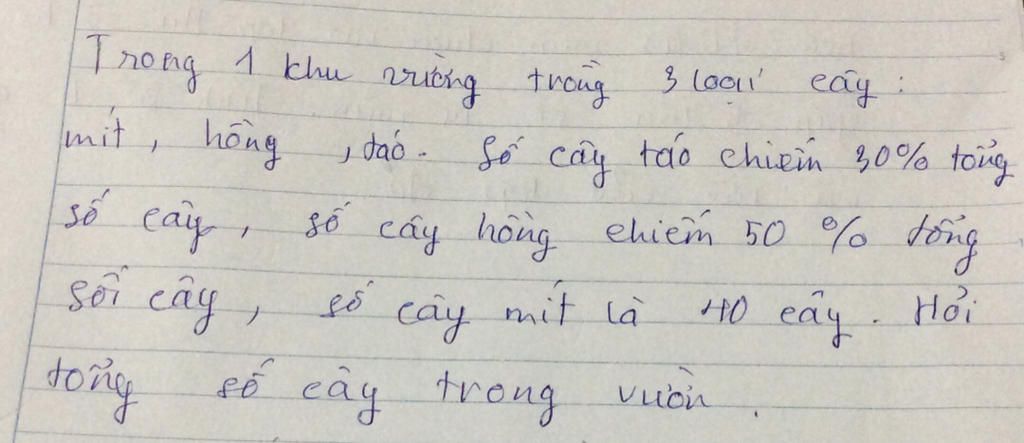 Trong 1 khu vườn trồng 3 loại cây :
mít , hồng , táo . Số cây táo chiếm 30% tổng
số cây , số cây hồng chiếm 50 % tổng
số cây , số cây mít là 40 cây . Hỏi
tổng số cây trong vườn .